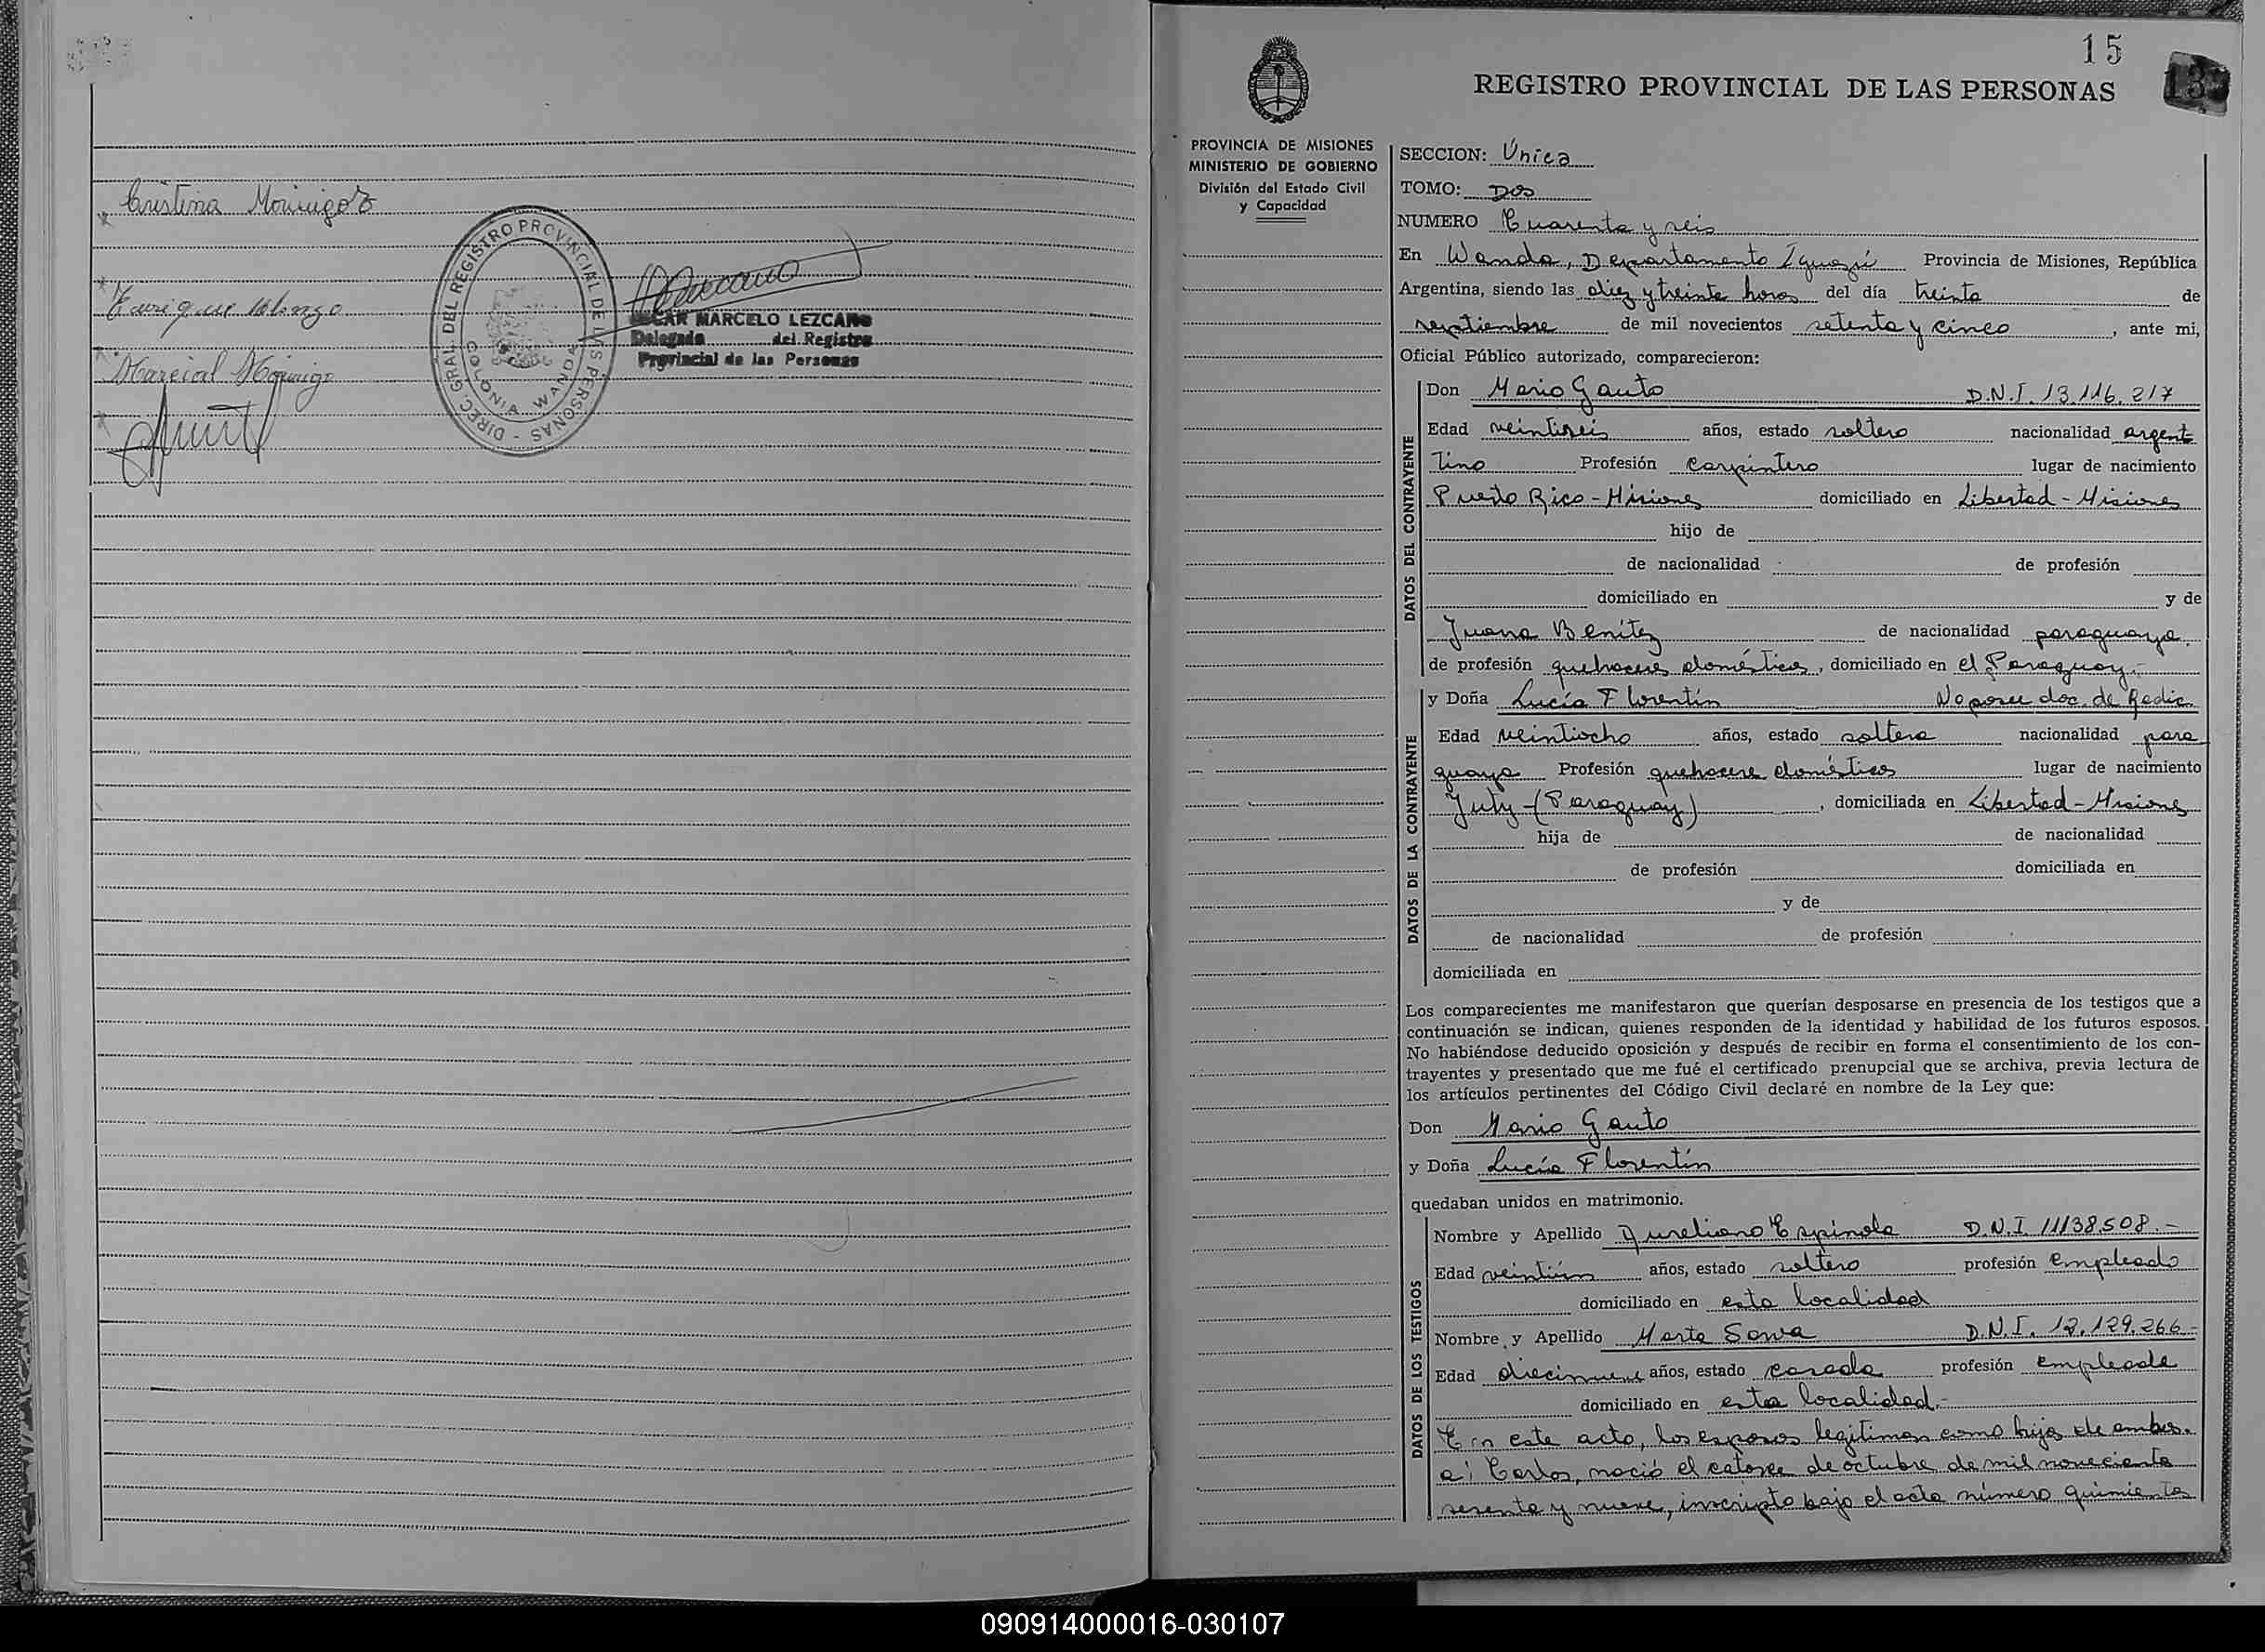 Cristina Morinigo
Enrique
Marcial Morinigo
DIREC. GRAL. DEL REGISTRO PROVINCIAL DE LAS PERSONAS -
COLONIA WANDA
OSCAR MARCELO LEZCANO
Delegado del Registro
Provincial de las Personas
15
REGISTRO PROVINCIAL DE LAS PERSONAS
13
PROVINCIA DE MISIONES
MINISTERIO DE GOBIERNO
División del Estado Civil
y Capacidad
SECCION: Única
TOMO: Dos
NUMERO Cuarenta y seis
En Wanda, Departamento Iguazú Provincia de Misiones, República
Argentina, siendo las diez y treinta horas del día treinta de
septiembre de mil novecientos setenta y cinco, ante mi,
Oficial Público autorizado, comparecieron:
DATOS DEL CONTRAYENTE
Don Mario Gauto D.N.I. 13.116.217
Edad veintiseis años, estado soltero nacionalidad argen
tino Profesión carpintero lugar de nacimiento
Puerto Rico - Misiones domiciliado en Libertad - Misiones
hijo de
de nacionalidad de profesión
domiciliado en y de
Juana Benítez de nacionalidad paraguaya.
de profesión quehaceres domésticos, domiciliado en el Paraguay.-
DATOS DE LA CONTRAYENTE
y Doña Lucía Florentín No posee doc. de Radic.
Edad veintiocho años, estado soltera nacionalidad para
guaya Profesión quehaceres domésticos lugar de nacimiento
Yuty - (Paraguay), domiciliada en Libertad - Misiones
hija de de nacionalidad
de profesión domiciliada en
y de
de nacionalidad de profesión
domiciliada en
Los comparecientes me manifestaron que querían desposarse en presencia de los testigos que a
continuación se indican, quienes responden de la identidad y habilidad de los futuros esposos.
No habiéndose deducido oposición y después de recibir en forma el consentimiento de los con-
trayentes y presentado que me fué el certificado prenupcial que se archiva, previa lectura de
los artículos pertinentes del Código Civil declaré en nombre de la Ley que:
Don Mario Gauto
y Doña Lucía Florentín
quedaban unidos en matrimonio.
DATOS DE LOS TESTIGOS
Nombre y Apellido Aureliano Espínola D.N.I. 11138.508.-
Edad veintiún años, estado soltero profesión empleado
domiciliado en esta localidad
Nombre y Apellido Marta Sowa D.N.I. 12.129.266-
Edad diecinueve años, estado casada profesión empleada
domiciliado en esta localidad.-
En este acto, los esposos legitiman como hijos de ambos.
a: Carlos, nació el catorce de octubre de mil novecientos
sesenta y nueve, inscripto bajo el acta número quinientos
090914000016-030107